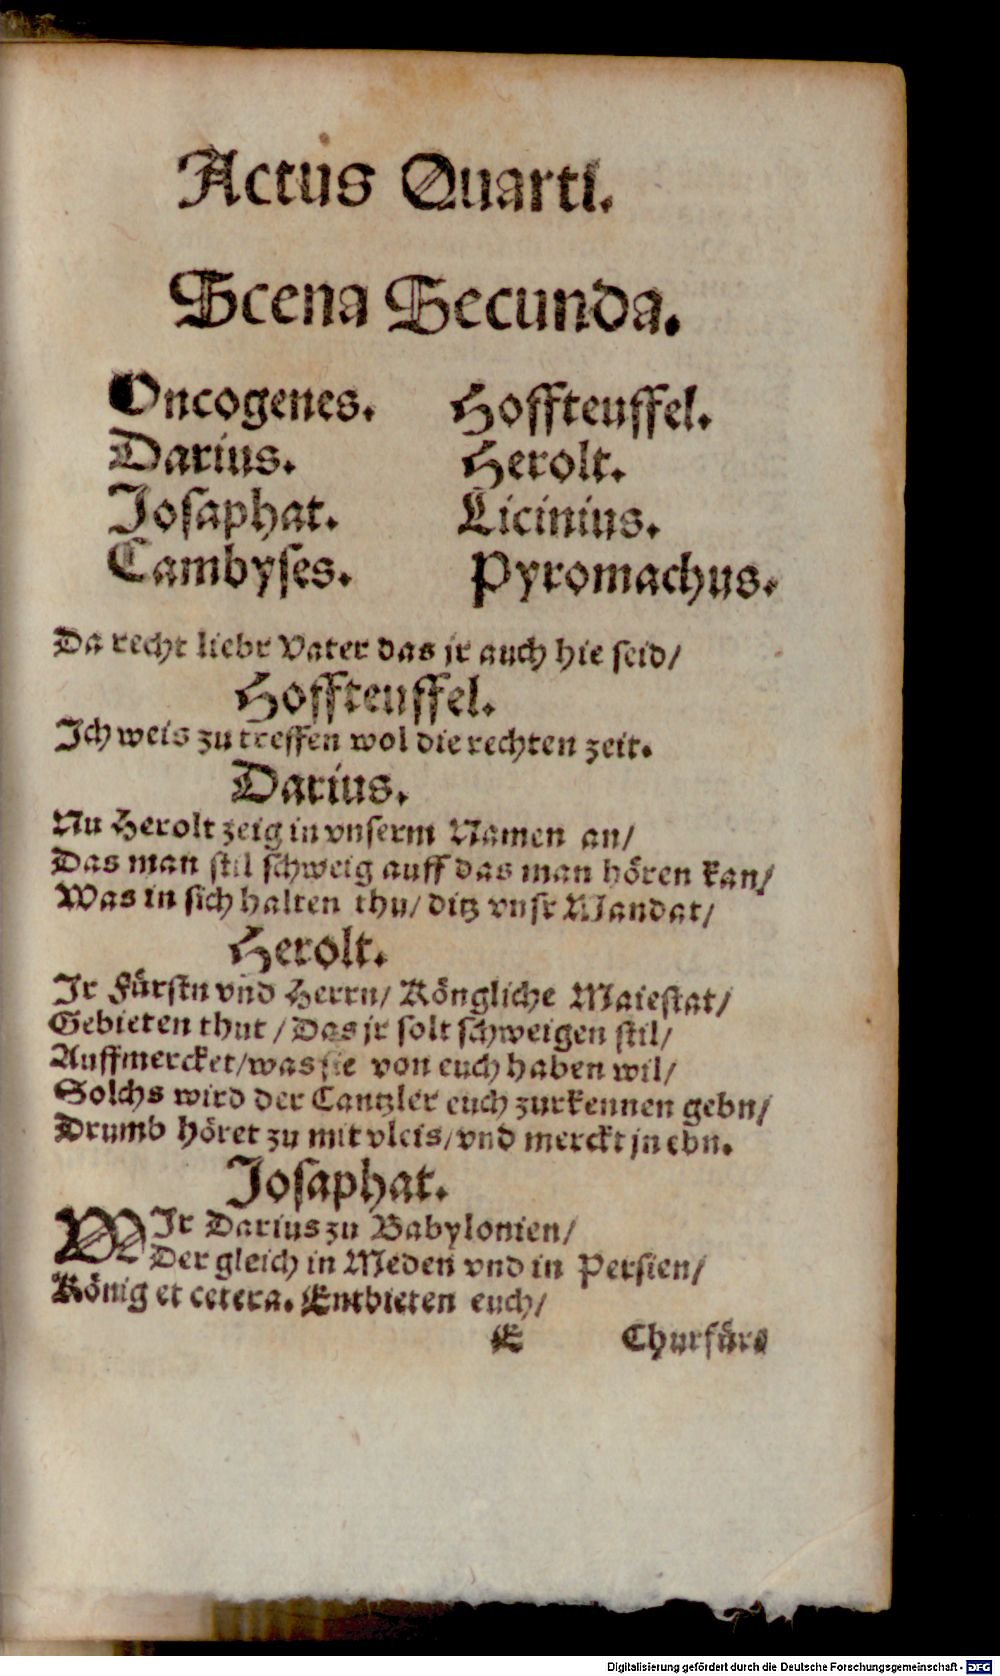 Actus Quarti.
Scena Secunda.
Oncogenes. Hoffteuffel.
Darius. Herolt.
Josaphat. Licinius.
Cambyses. Pyromachus.
Da recht liebr Vater das jr auch hie seid/
Hoffteuffel.
Ich weis zu treffen wol die rechten zeit.
Darius.
Nu Herolt zeig in vnserm Namen an/
Das man stil schweig auff das man hören kan/
Was in sich halten thu/ ditz vnsr Mandat/
Herolt.
Ir Fürstn vnd Herrn/ Köngliche Maiestat/
Gebieten thut / Das jr solt schweigen stil/
Auffmercket/was sie von euch haben wil/
Solchs wird der Cantzler euch zurkennen gebn/
Drumb höret zu mit vleis/vnd merckt jn ebn.
Josaphat.
WIr Darius zu Babylonien/
Der gleich in Meden vnd in Persien/
König et cetera. Entbieten euch/
E Churfürs
Digitalisierung gefördert durch die Deutsche Forschungsgemeinschaft - DFG